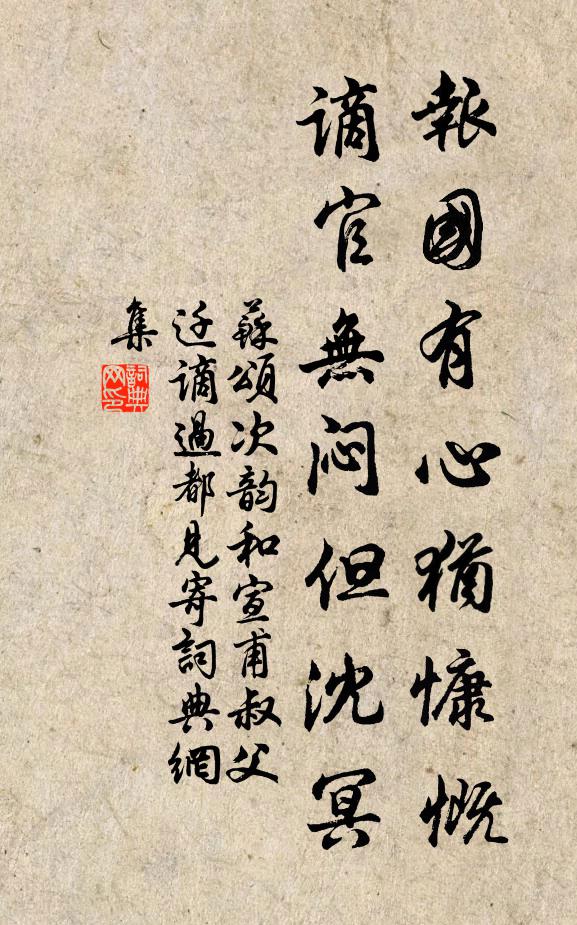 報國有心猶慷慨
謫官無悶但沈冥
蘇頌次韵和宣甫叔父
迁謫過都見寄詞典網
集
詞典
网印